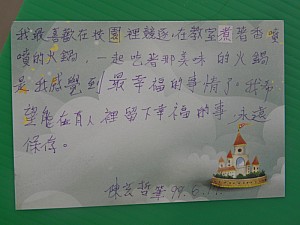 我最喜歡在校園裡競逐,在教室煮著香噴
噴的火鍋,一起吃著那美味的火鍋
是我感覺到最幸福的事情了,我希
望能在有人裡留下幸福的事,永遠
保存。
哲筆 99.6.